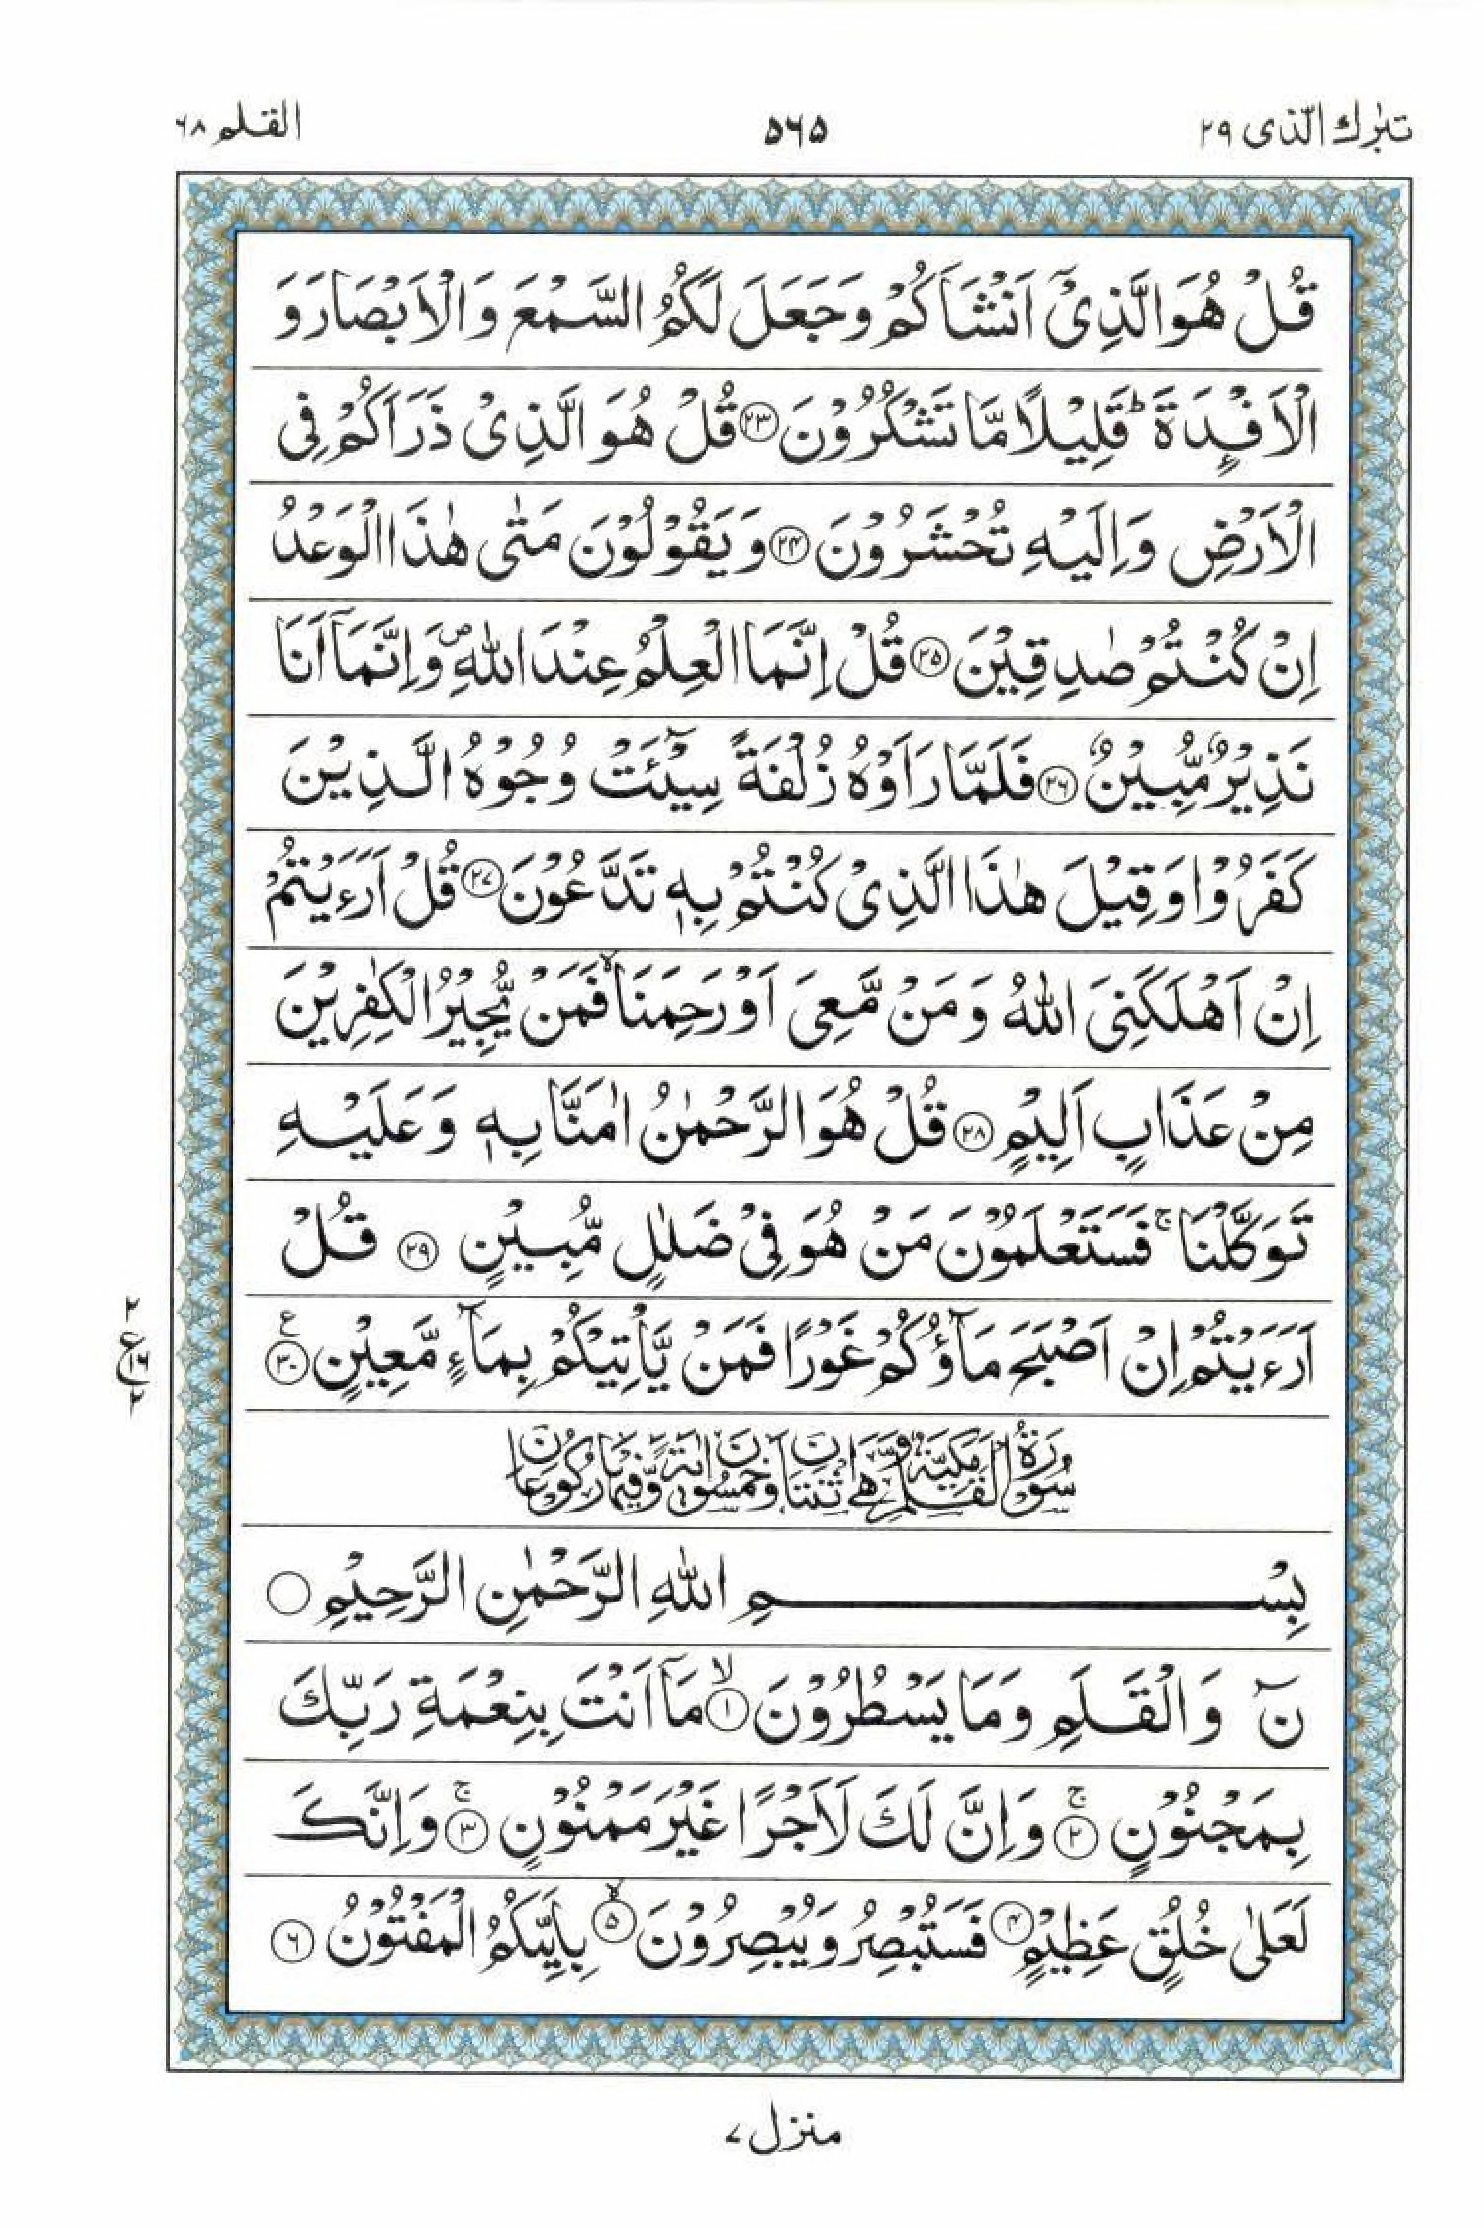 تبٰرك الّذى ٢٩
٥٦٥
القلم ٦٨
قُلْ هُوَ الَّذِىْۤ اَنْشَاَكُمْ وَجَعَلَ لَكُمُ السَّمْعَ وَالْاَبْصَارَ وَ
الْاَفْـِٕدَةَ ؕ قَلِيْلًا مَّا تَشْكُرُوْنَ ﴿٢٣﴾ قُلْ هُوَ الَّذِىْ ذَرَاَكُمْ فِى
الْاَرْضِ وَاِلَيْهِ تُحْشَرُوْنَ ﴿٢٤﴾ وَيَقُوْلُوْنَ مَتٰى هٰذَا الْوَعْدُ
اِنْ كُنْتُمْ صٰدِقِيْنَ ﴿٢٥﴾ قُلْ اِنَّمَا الْعِلْمُ عِنْدَ اللّٰهِ ۪ وَاِنَّمَاۤ اَنَا
نَذِيْرٌ مُّبِيْنٌ ﴿٢٦﴾ فَلَمَّا رَاَوْهُ زُلْفَةً سِيْٓـَٔتْ وُجُوْهُ الَّذِيْنَ
كَفَرُوْا وَقِيْلَ هٰذَا الَّذِىْ كُنْتُمْ بِهٖ تَدَّعُوْنَ ﴿٢٧﴾ قُلْ اَرَءَيْتُمْ
اِنْ اَهْلَكَنِىَ اللّٰهُ وَمَنْ مَّعِىَ اَوْ رَحِمَنَا ۙ فَمَنْ يُّجِيْرُ الْكٰفِرِيْنَ
مِنْ عَذَابٍ اَلِيْمٍ ﴿٢٨﴾ قُلْ هُوَ الرَّحْمٰنُ اٰمَنَّا بِهٖ وَعَلَيْهِ
تَوَكَّلْنَا ۚ فَسَتَعْلَمُوْنَ مَنْ هُوَ فِىْ ضَلٰلٍ مُّبِيْنٍ ﴿٢٩﴾ قُلْ
اَرَءَيْتُمْ اِنْ اَصْبَحَ مَآؤُكُمْ غَوْرًا فَمَنْ يَّاْتِيْكُمْ بِمَآءٍ مَّعِيْنٍ ﴿٣٠﴾ ع
٢
ع ١٦
٢
سُوْرَةُ الْقَلَمِ مَكِّيَّةٌ وَّهِىَ اثْنَتَانِ وَخَمْسُوْنَ اٰيَةً وَّفِيْهَا رُكُوْعَانِ
بِسْمِ اللّٰهِ الرَّحْمٰنِ الرَّحِيْمِ
نٓ وَالْقَلَمِ وَمَا يَسْطُرُوْنَ ۙ﴿١﴾ مَاۤ اَنْتَ بِنِعْمَةِ رَبِّكَ
بِمَجْنُوْنٍ ۚ﴿٢﴾ وَاِنَّ لَكَ لَاَجْرًا غَيْرَ مَمْنُوْنٍ ۚ﴿٣﴾ وَاِنَّكَ
لَعَلٰى خُلُقٍ عَظِيْمٍ ﴿٤﴾ فَسَتُبْصِرُ وَيُبْصِرُوْنَ ۙ﴿٥﴾ بِاَيِّىكُمُ الْمَفْتُوْنُ ﴿٦﴾
منزل ٧